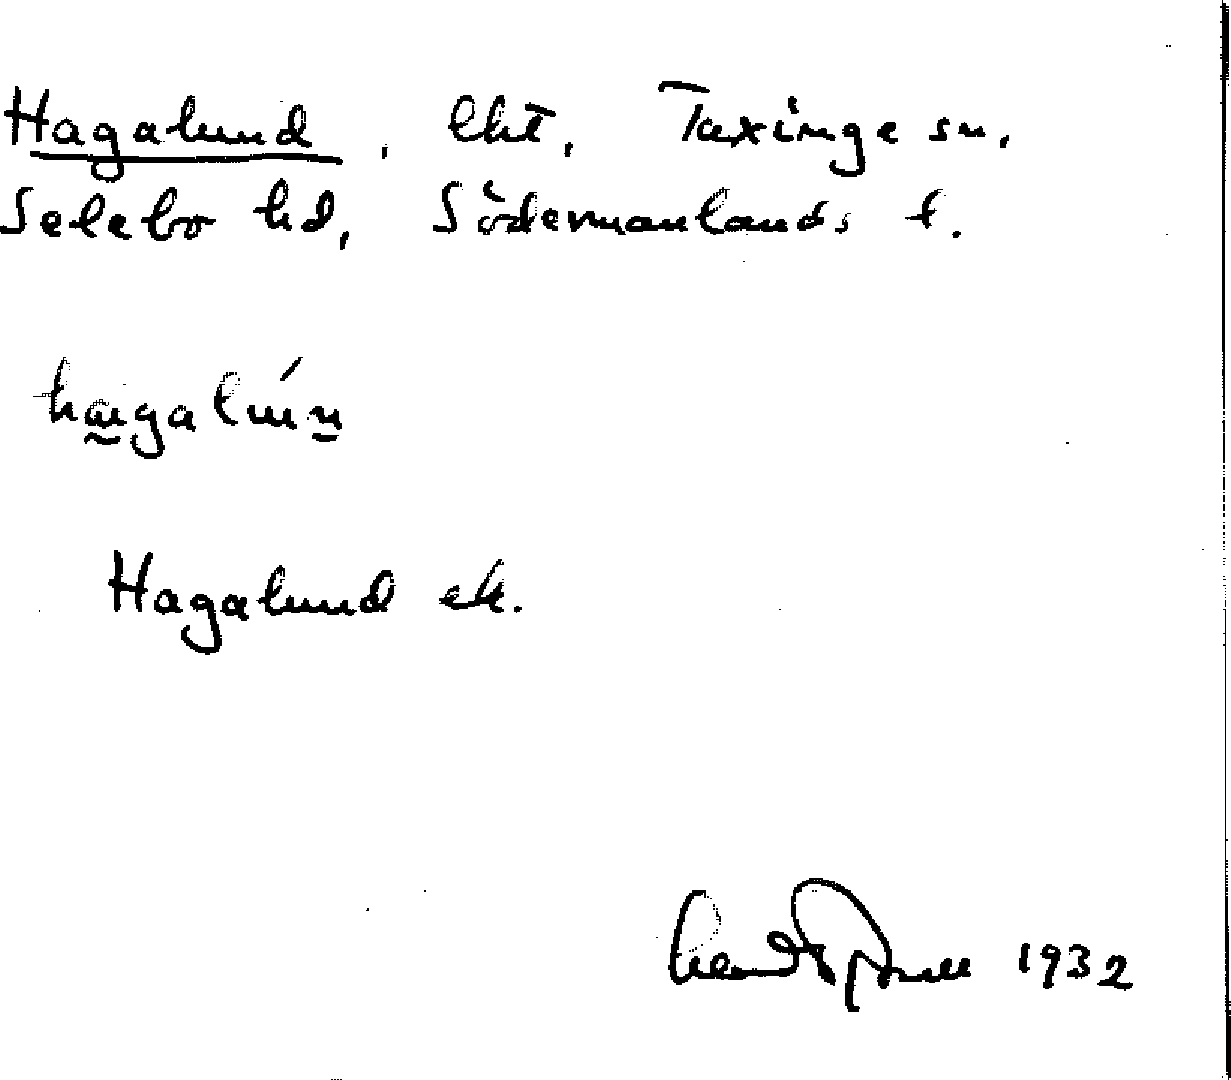 Hagalund, lht, Taxinge sn,
Selebo hd, Södermanlands l.
Hagalund ek.
1932